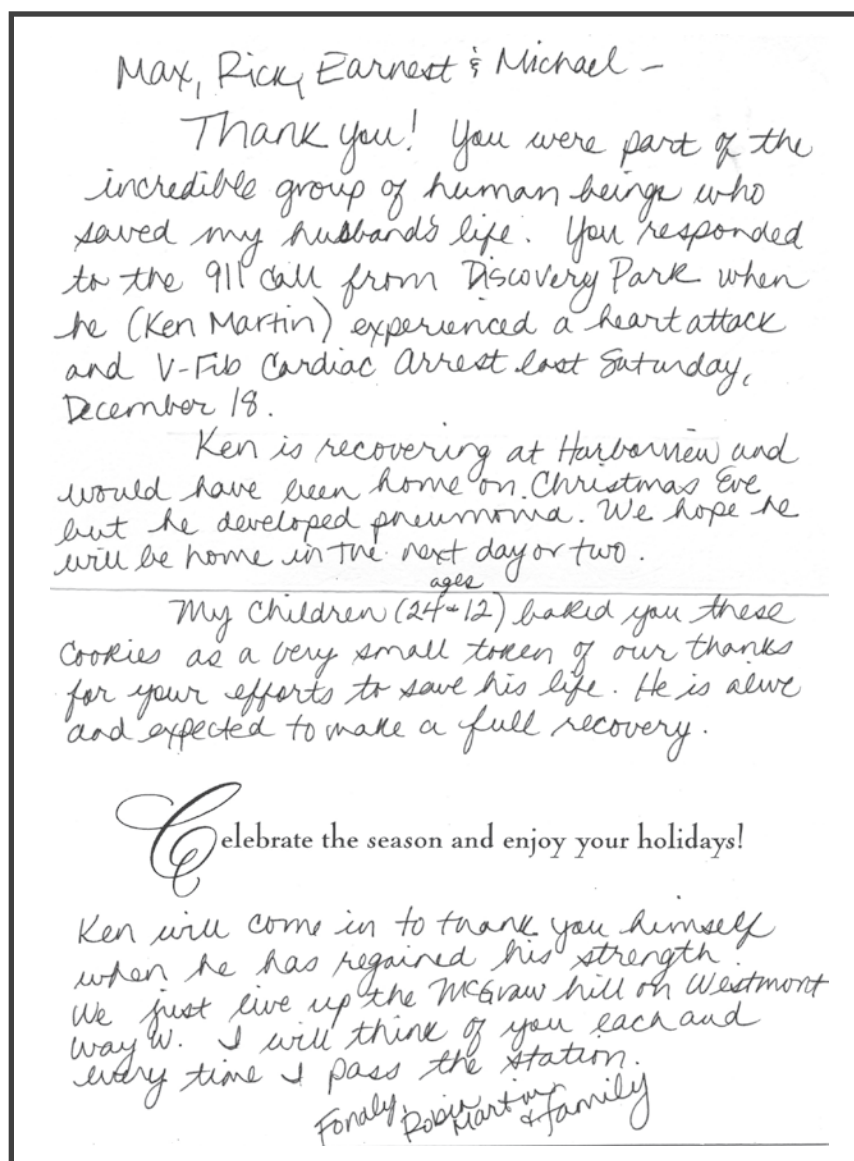 Max, Rick, Earnest & Michael –
Thank you! You were part of the
incredible group of human beings who
saved my husband's life. You responded
to the 911 call from Discovery Park when
he (Ken Martin) experienced a heart attack
and V-Fib Cardiac Arrest last Saturday,
December 18.
Ken is recovering at Harborview and
would have been home on Christmas Eve
but he developed pneumonia. We hope he
will be home in the next day or two.
ages
My children (24 & 12) baked you these
cookies as a very small token of our thanks
for your efforts to save his life. He is alive
and expected to make a full recovery.
Celebrate the season and enjoy your holidays!
Ken will come in to thank you himself
when he has regained his strength.
We just live up the McGraw hill on Westmont
Way W. I will think of you each and
every time I pass the station.
Fondly,
Robin Martin
& family